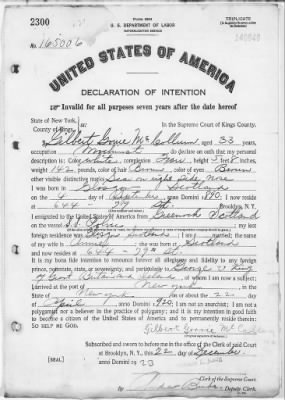 2300
Form 2203
TRIPLICATE
U. S. DEPARTMENT OF LABOR
NATURALIZATION SERVICE
No. 165006
UNITED STATES OF AMERICA
DECLARATION OF INTENTION
Invalid for all purposes seven years after the date hereof
State of New York,
County of Kings,
In the Supreme Court of Kings County.
I, Gilbert Gowie McCollum, aged 33 years,
occupation, do declare on oath that my personal
description is: Color white, complexion, height 5 feet 8 inches,
weight 142 pounds, color of hair Brown, color of eyes Brown
other visible distinctive marks Scar on right side nose
I was born in Glasgow Scotland
on the 4 day of September, anno Domini 1890; I now reside
at 644 - 79 St., Brooklyn, N.Y.
I emigrated to the United States of America from Greenock Scotland
on the vessel S.S.; my last
foreign residence was Glasgow Scotland; I am married; the name
of my wife is; she was born at Scotland
and now resides at 644 - 79 St.
It is my bona fide intention to renounce forever all allegiance and fidelity to any foreign
prince, potentate, state, or sovereignty, and particularly to George V King
of Great Britain and Ireland, of whom I am now a subject;
I arrived at the port of New York, in the
State of New York, on or about the 22 day
of April, anno Domini 1920; I am not an anarchist; I am not a
polygamist nor a believer in the practice of polygamy; and it is my intention in good faith
to become a citizen of the United States of America and to permanently reside therein:
SO HELP ME GOD.
Gilbert Gowie McCollum
Subscribed and sworn to before me in the office of the Clerk of said Court
at Brooklyn, N.Y., this 22 day of December
[SEAL]
anno Domini 1923
Clerk of the Supreme Court.
By, Deputy Clerk.